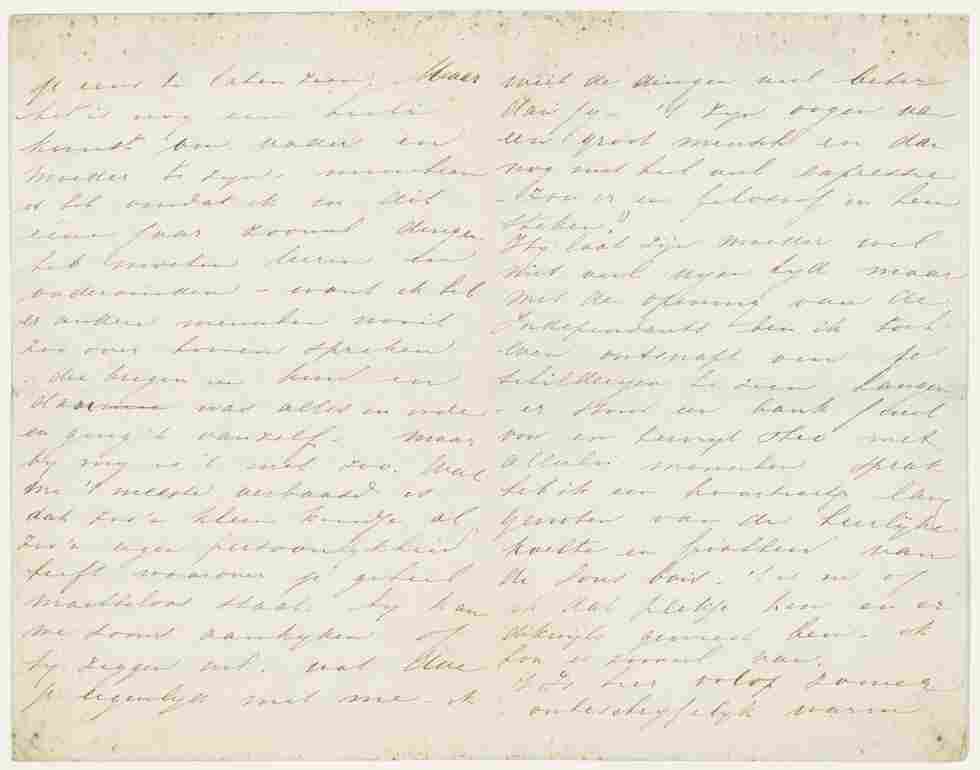 je eens te laten zien. Maar
het is nog een heele
kunst om vader en
moeder te zijn. misschien
is het omdat ik in dit
eene jaar zooveel dingen
heb moeten leeren en
ondervinden - want ik heb
er andere menschen nooit
zoo over hooren spreken
- die kregen een kind en
daarmee was alles in orde
en ging 't vanzelf. maar
bij mij is 't niet zoo. Wat
me 't meeste verbaasd is
dat zoo'n klein kindje al
zoo'n eigen persoonlijkheid
heeft waarover je geheel
machteloos staat. hij kan
me soms aankijken of
hij zeggen wil. wat doe
je eigenlijk met me - ik
weet de dingen veel beter
dan jij - 't Zijn oogen van
een groot mensch en dan
nog met heel veel expressie
- Zou er een filosoof in hem
steken?
Hij laat zijn moeder wel
niet veel eigen tijd maar
met de opening van de
Independants ben ik toch
even ontsnapt om je
schilderijen te zien hangen
- er stond een bank juist
voor en terwijl Theo met
allerlei menschen sprak
heb ik een kwartiertje lang
genoten van de heerlijke
koelte en frischheid van
de sous bois - 't is me of
ik dat plekje ken en er
dikwijls geweest ben - ik
hou er zooveel van.
't Is hier volop zomer
onbeschrijfelijk warm